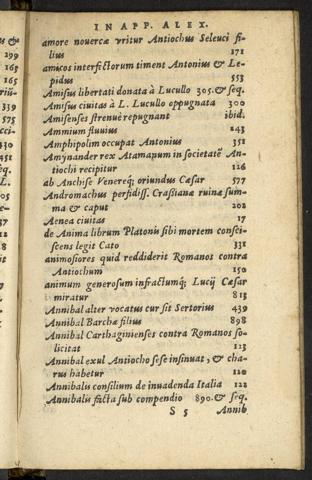 IN APP. ALEX.
amore nouercæ vritur Antiochus Seleuci fi-
lius 171
amicos interfectorum timent Antonius & Le-
pidus 553
Amisus libertati donata à Lucullo 305. & seq.
Amisus ciuitas à L. Lucullo oppugnata 300
Amisenses strenuè repugnant ibid.
Ammium fluuius 243
Amphipolim occupat Antonius 351
Amynander rex Atamanum in societatē An-
tiochi recipitur 126
ab Anchise Venereq; oriundus Cæsar 577
Andromachus perfidiss. Crassianæ ruinæ sum-
ma & caput 202
Aenea ciuitas 17
de Anima librum Platonis sibi mortem consci-
scens legit Cato 331
animosiores quid reddiderit Romanos contra
Antiochum 150
animum generosum infractumq; Lucij Cæsar
miratur 813
Annibal alter vocatus cur sit Sertorius 439
Annibal Barchæ filius 898
Annibal Carthaginienses contra Romanos so-
licitat 123
Annibal exul Antiocho sese insinuat, & cha-
rus habetur 120
Annibalis consilium de inuadenda Italia 122
Annibalis facta sub compendio 890. & seq.
S 5 Annib
us &
299
165
165
339
575
330
451
37